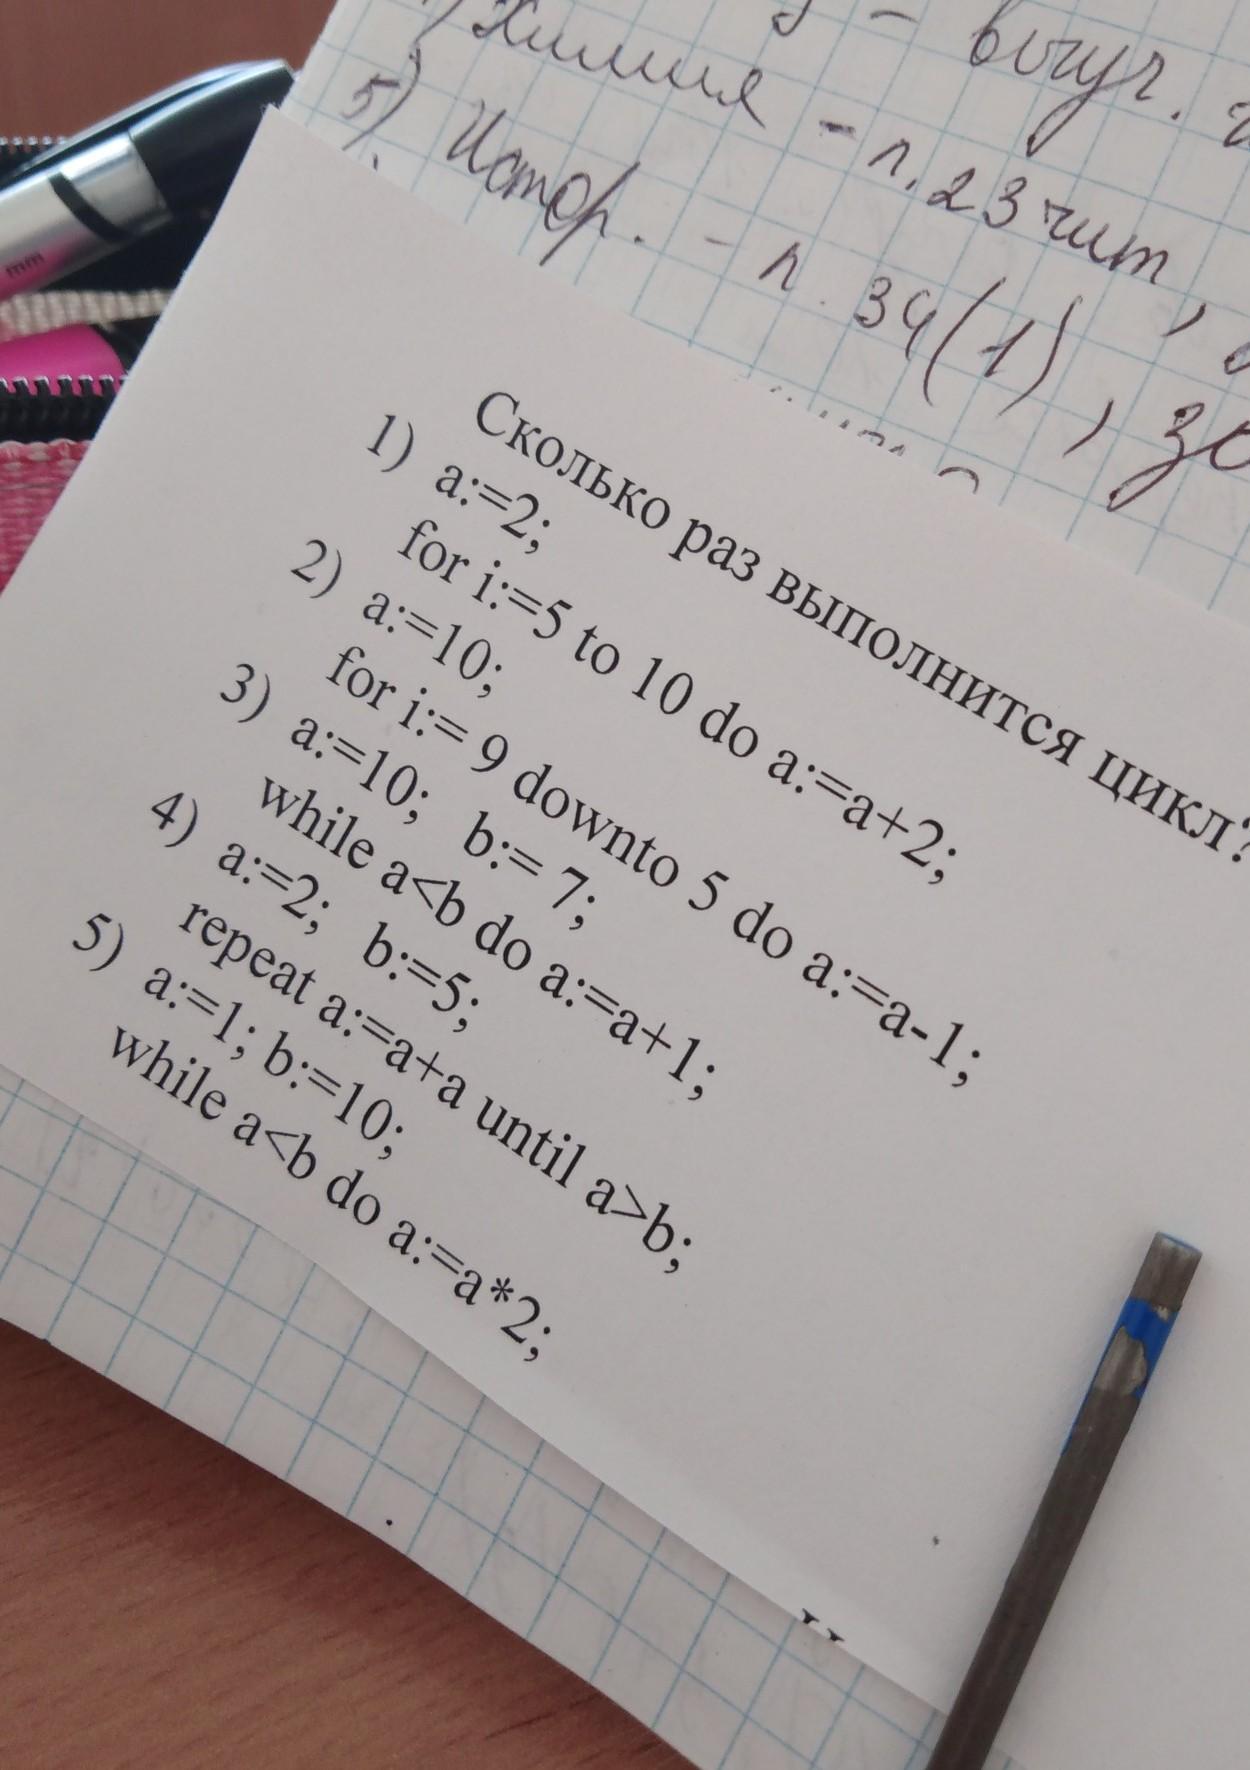 Химия - п.23 чит,
5) Истор. - п. 34(1),
Сколько раз выполнится цикл?
1) a:=2;
for i:=5 to 10 do a:=a+2;
2) a:=10;
for i:= 9 downto 5 do a:=a-1;
3) a:=10; b:= 7;
while a<b do a:=a+1;
4) a:=2; b:=5;
repeat a:=a+a until a>b;
5) a:=1; b:=10;
while a<b do a:=a*2;
mm